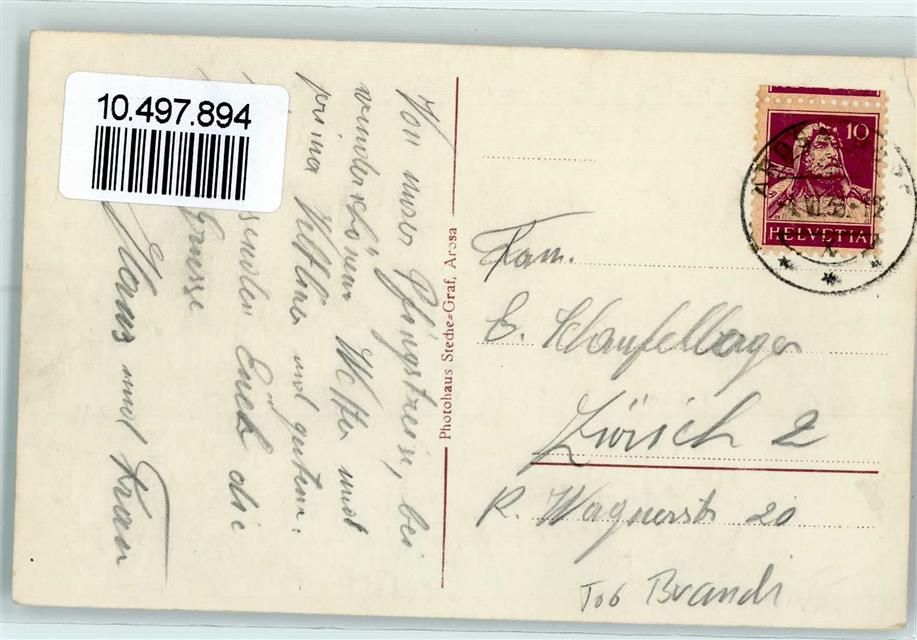 10.497.894
Von unser Pfingstreise, bei
wunderschönem Wetter und
prima
und gutem
senden Euch die
Grüsse
Hans und Frau
Photohaus Steche-Graf, Arosa
10
HELVETIA
Fam.
E. Schaufelberger
Zürich 2
R. Wagnerstr 20
Brandi